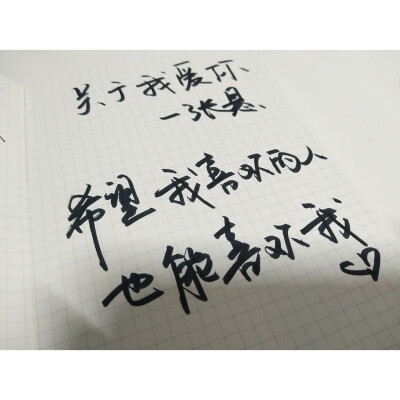 关于我爱你
一张悬
希望我喜欢的人
也能喜欢我